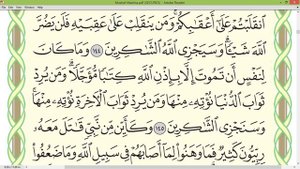 ٱنقَلَبْتُمْ عَلَىٰٓ أَعْقَـٰبِكُمْ ۚ وَمَن يَنقَلِبْ عَلَىٰ عَقِبَيْهِ فَلَن يَضُرَّ
ٱللَّهَ شَيْـًٔا ۗ وَسَيَجْزِى ٱللَّهُ ٱلشَّـٰكِرِينَ ١٤٤ وَمَا كَانَ
لِنَفْسٍ أَن تَمُوتَ إِلَّا بِإِذْنِ ٱللَّهِ كِتَـٰبًا مُّؤَجَّلًا ۗ وَمَن يُرِدْ
ثَوَابَ ٱلدُّنْيَا نُؤْتِهِۦ مِنْهَا وَمَن يُرِدْ ثَوَابَ ٱلْـَٔاخِرَةِ نُؤْتِهِۦ مِنْهَا ۚ
وَسَنَجْزِى ٱلشَّـٰكِرِينَ ١٤٥ وَكَأَيِّن مِّن نَّبِىٍّ قَـٰتَلَ مَعَهُۥ
رِبِّيُّونَ كَثِيرٌ فَمَا وَهَنُوا۟ لِمَآ أَصَابَهُمْ فِى سَبِيلِ ٱللَّهِ وَمَا ضَعُفُوا۟